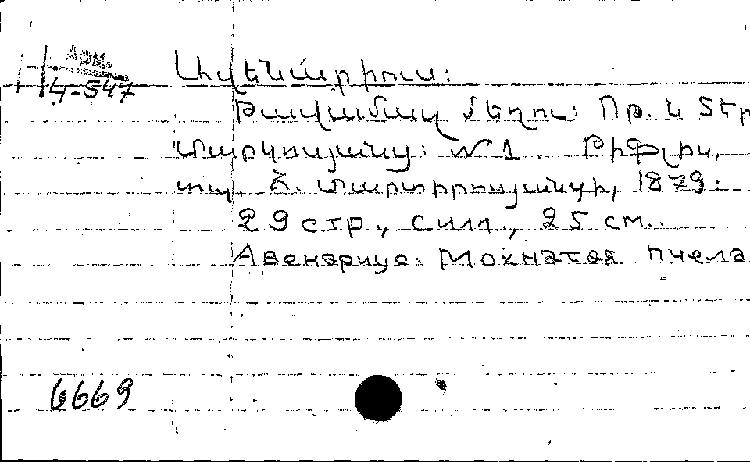 Арм.
4-547
Ավենարիուս:
Թավամազ մեղու: Որ. և Տեր
Մարկոսյանց: №1. Թիֆլիս,
տպ. Հ. Մարտիրոսյանցի, 1879:
29 стр., силл., 25 см.
Авенариус. Мохнатая пчела
6669